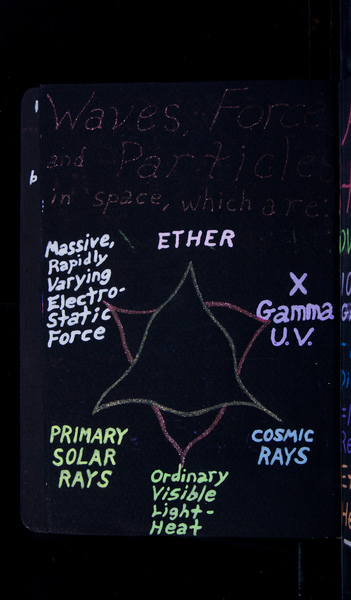 Waves, Force
and Particles
in space, which are:
ETHER
Massive,
Rapidly
Varying
Electro-
Static
Force
X
Gamma
U.V.
PRIMARY
SOLAR
RAYS
COSMIC
RAYS
Ordinary
Visible
Light-
Heat
b